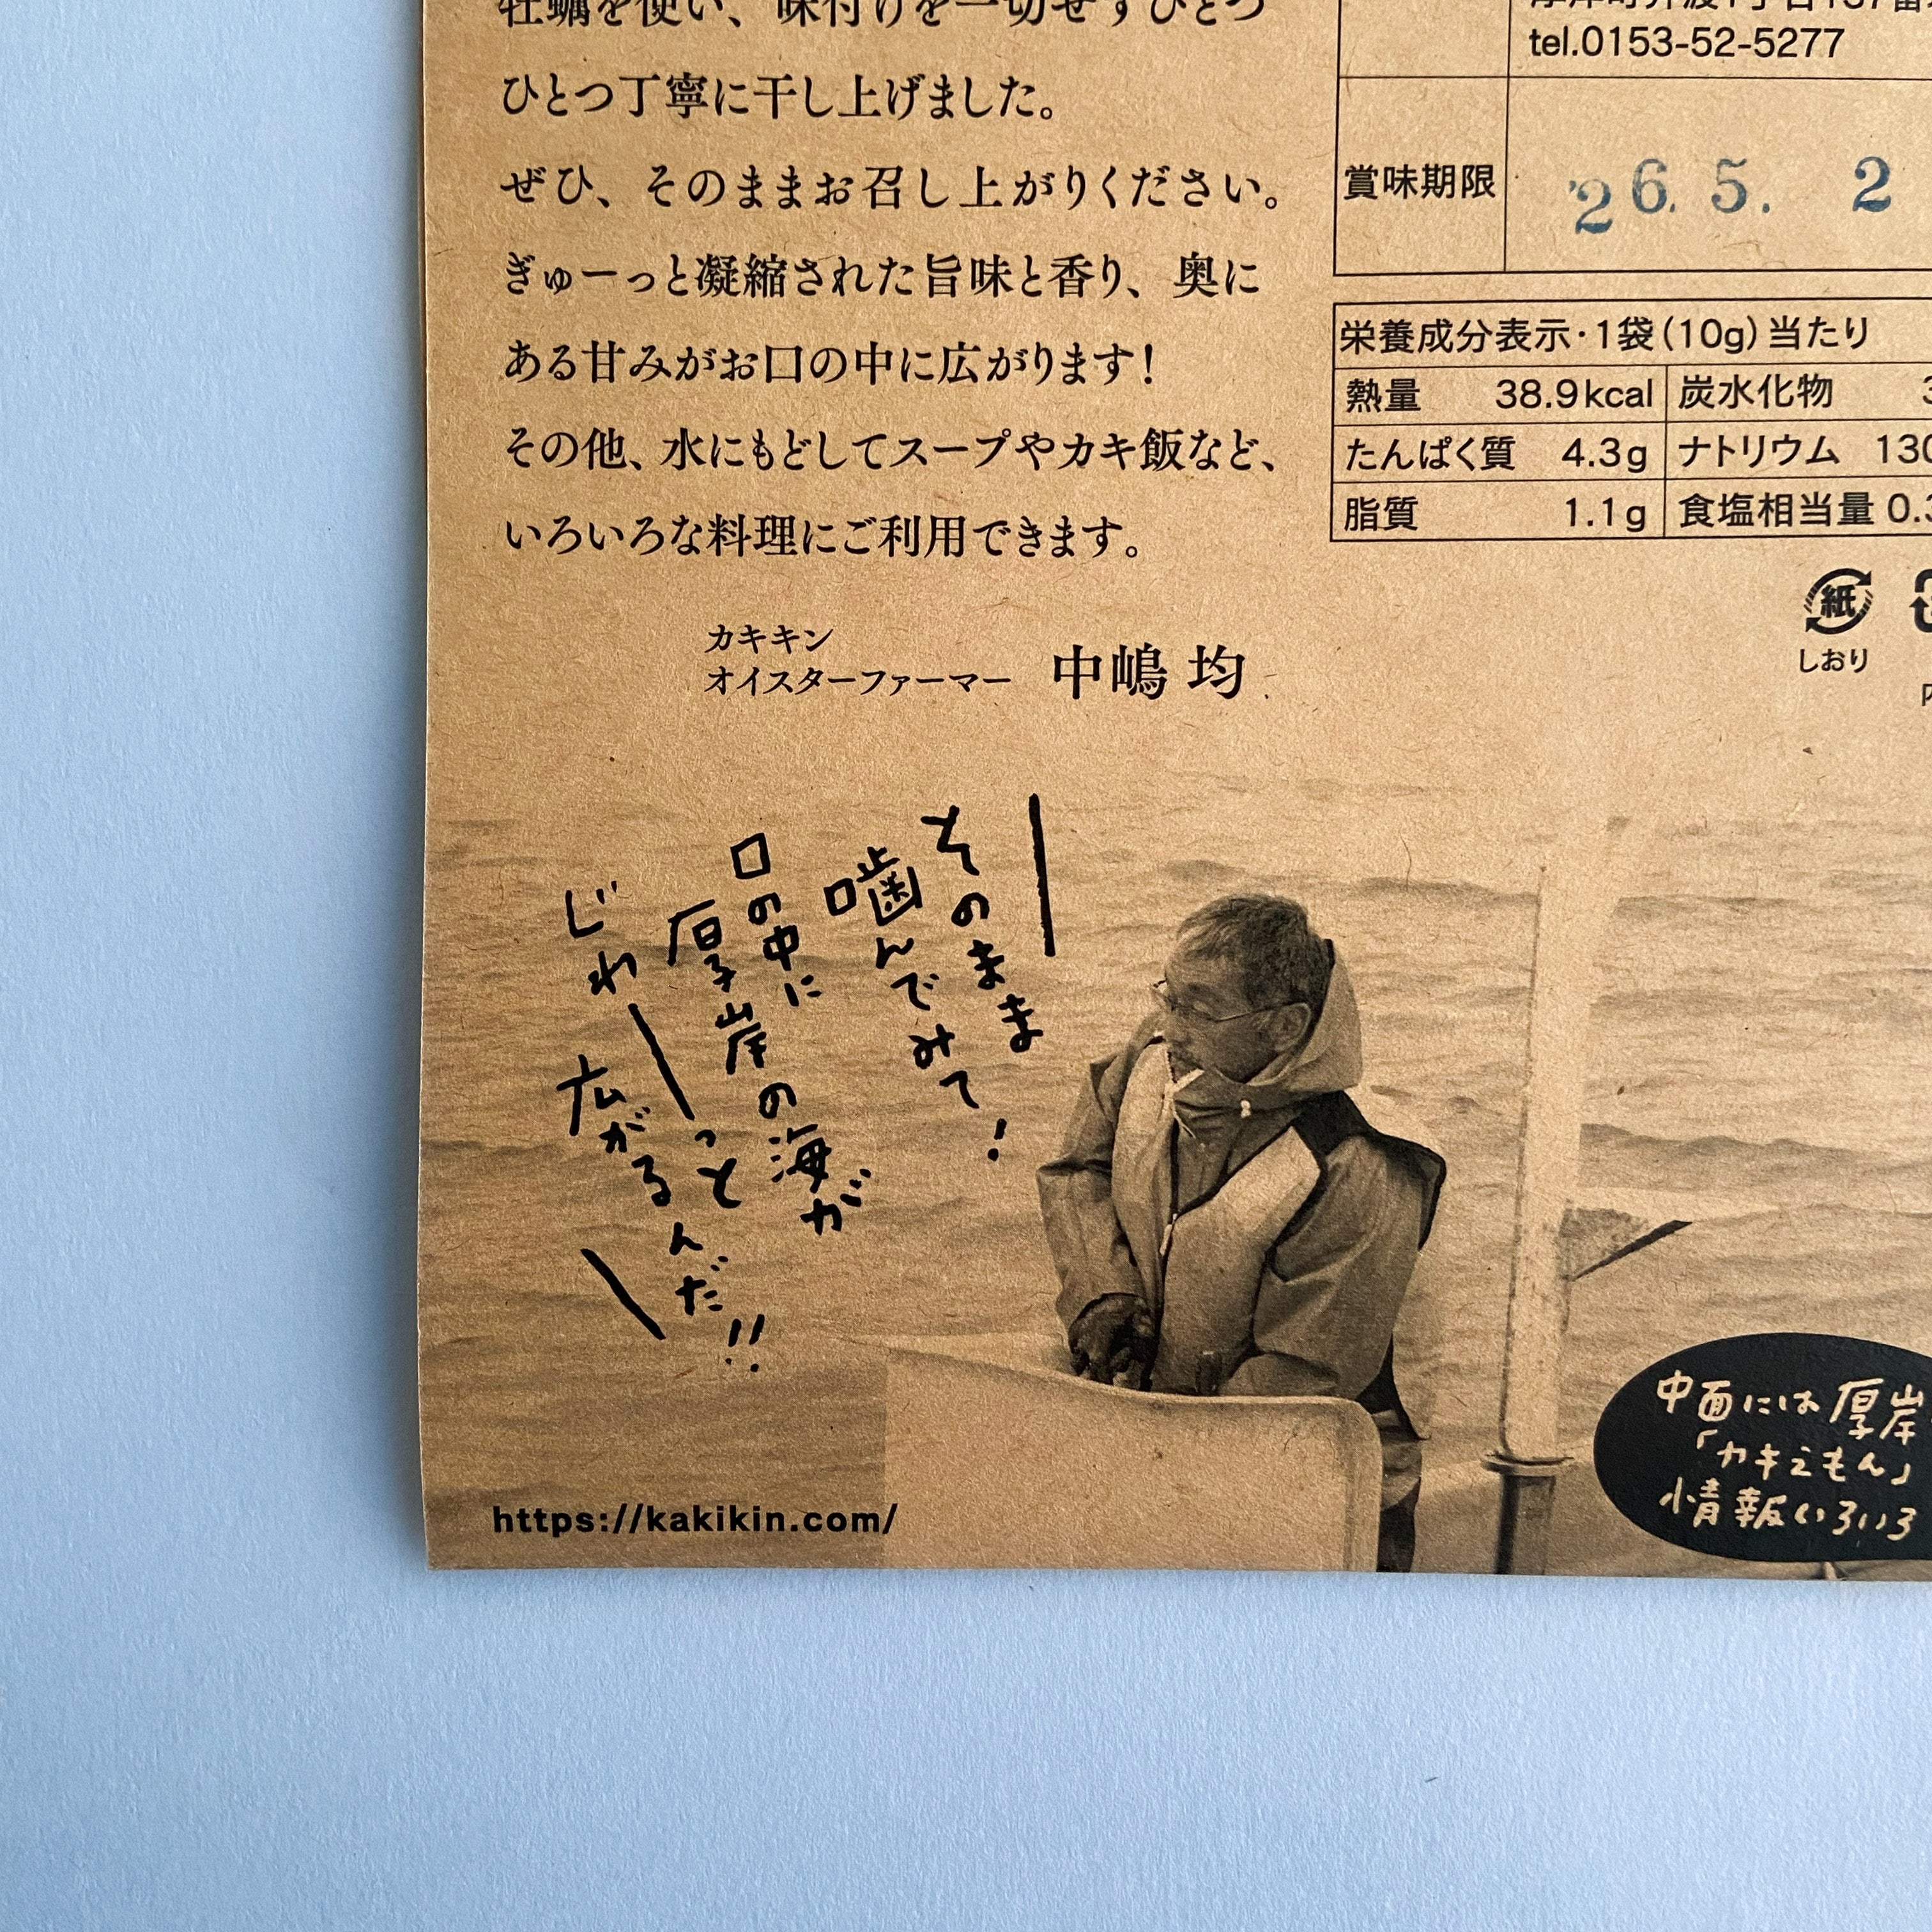 牡蠣を使い、味付けを一切せずひとつ
ひとつ丁寧に干し上げました。
ぜひ、そのままお召し上がりください。
ぎゅーっと凝縮された旨味と香り、奥に
ある甘みがお口の中に広がります!
その他、水にもどしてスープやカキ飯など、
いろいろな料理にご利用できます。
カキキン
オイスターファーマー 中嶋 均
tel.0153-52-5277
賞味期限 '26.5. 2
栄養成分表示・1袋(10g)当たり
熱量 38.9kcal 炭水化物
たんぱく質 4.3g ナトリウム 130
脂質 1.1g 食塩相当量 0.3
紙
しおり
そのまま
噛んでみて!
口の中に
厚岸の海が
じわーっと
広がるんだ!!
中面には厚岸
「カキえもん」
情報いろいろ
https://kakikin.com/